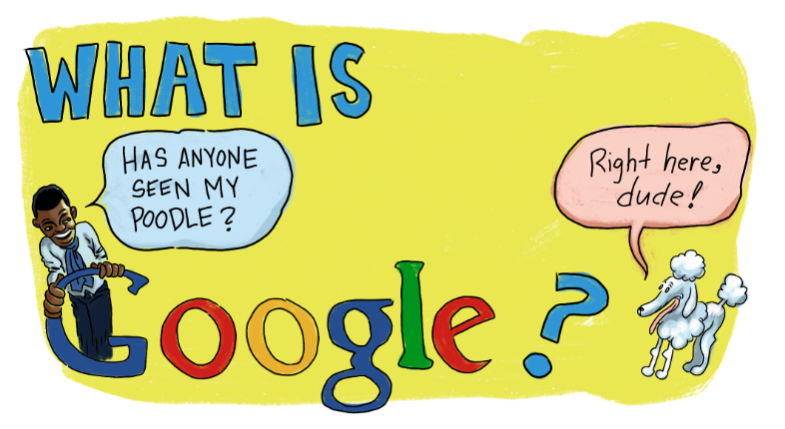 WHAT IS
HAS ANYONE
SEEN MY
POODLE?
Right here,
dude!
Google?